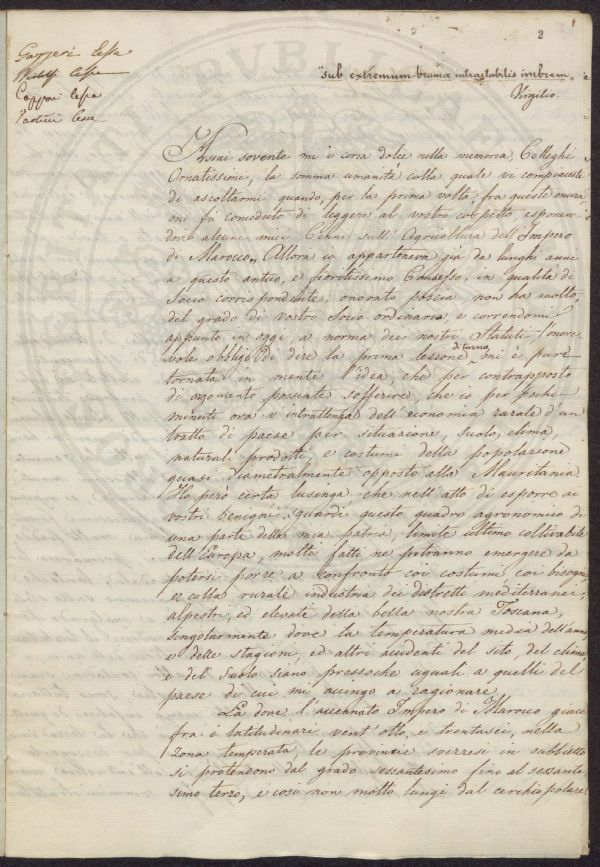 2
"sub extremum brumae intractabilis imbrem.
Virgilio.
Assai sovente mi è corsa dolce nella memoria, Colleghi
Ornatissimi, la somma umanità colla quale vi compiaceste
di ascoltarmi quando, per la prima volta fra queste mura
mi fu conceduto di leggere al vostro cospetto, esponen
dovi alcuni miei Cenni sull'Agricoltura dell'Impero
di Marocco. Allora io apparteneva già da lunghi anni
a questo antico, e fioritissimo Consesso, in qualità di
Socio corrispondente: onorato poscia non ha molto,
del grado di vostro Socio ordinario, e correndomi
appunto in oggi a norma dei nostri Statuti l'onore-
vole obbligo di dire la prima lezione di turno, mi è pure
tornata in mente l'idea, che per contrapposto
di argomento possiate sofferire, che io per pochi
minuti ora v'intrattenga dell'economia rurale d'un
tratto di paese per situazione, suolo, clima,
naturali prodotti, e costumi della popolazione
quasi diametralmente opposto alla Mauritania.
Ho però certa lusinga che nell'atto di esporre ai
vostri benigni sguardi questo quadro agronomico di
una parte della mia patria, limite ultimo coltivabile
dell'Europa, molti fatti ne potranno emergere da
potersi porre a confronto coi costumi, coi bisogni,
e colla rurale industria dei distretti mediterranei,
alpestri, ed elevati della bella nostra Toscana,
singolarmente dove la temperatura media dell'anno
e delle stagioni, ed altri accidenti del sito, del clima
e del suolo siano pressochè uguali a quelli del
paese di cui mi accingo a ragionare.
La dove l'accennato Impero di Marocco giace
fra i latitudinari vent'otto, e trentasei, nella
zona temperata, le provincie svezzesi in subbietto
si protendono dal grado sessantesimo fino al sessanta
simo terzo, e così non molto lungi dal cerchio polare: